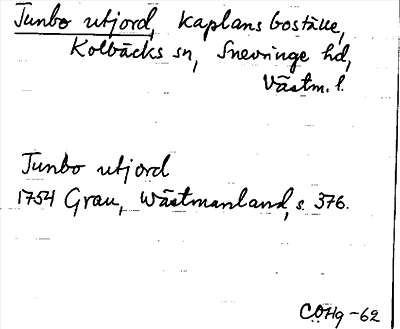 Junbo utjord, kaplans boställe,
Kolbäcks sn, Snevringe hd,
Västm. l.
Junbo utjord
1754 Grau, Wästmanland, s. 376.
COHg -62